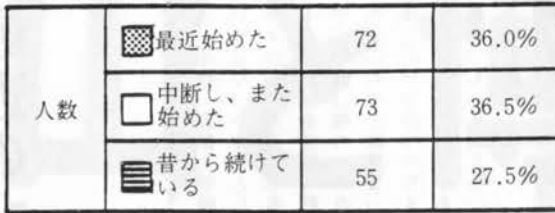 最近始めた 72 36.0%
人数
中断し、また
始めた 73 36.5%
昔から続けて
いる 55 27.5%